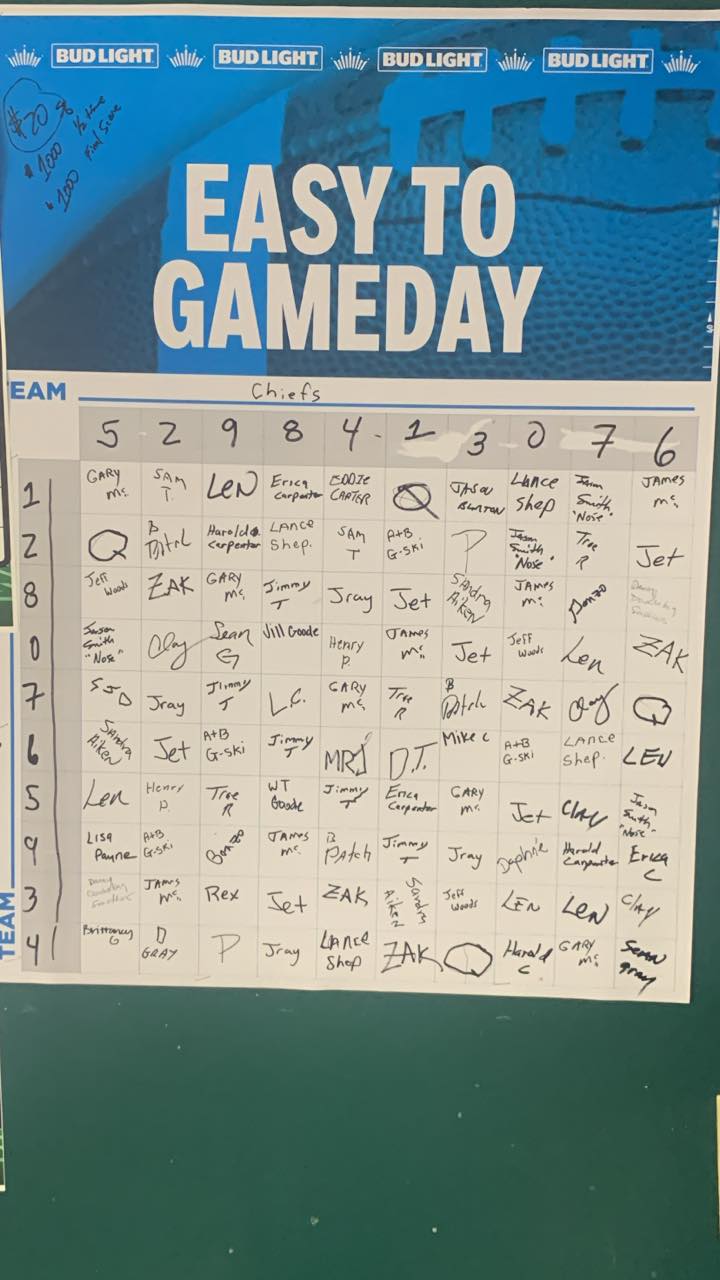 BUD LIGHT BUD LIGHT BUD LIGHT BUD LIGHT
$20 sq
$1000 ½ time
$1000 Final Score
EASY TO
GAMEDAY
TEAM Chiefs
5 2 9 8 4 1 3 0 7 6
1 GARY Mc. SAM T. LEN Erica Carpenter EDDIE CARTER Q JASON BURTON LANCE Shep Jason Smith "Nose" JAMES Mc.
2 Q B Patch Harold Carpenter LANCE Shep. SAM T A+B G-SKI P Jason Smith "Nose" Tree R Jet
8 Jeff Woods ZAK GARY Mc. Jimmy T Jray Jet Sandra Aiken JAMES Mc. Bonzo
0 Jason Smith "Nose" Clay Sean G Jill Goode Henry P. JAMES Mc. Jet Jeff Woods Len ZAK
7 SJD Jray Jimmy T L.C. GARY Mc. Tree R B Patch ZAK Q
6 Sandra Aiken Jet A+B G-SKI Jimmy T MRJ D.T. Mike C A+B G-SKI LANCE Shep. LEN
5 Len Henry P. Tree R WT Goode Jimmy T Erica Carpenter GARY Mc. Jet CLAY Jason Smith "Nose"
9 LISA Payne A+B G-SKI Bonzo JAMES Mc. B PATCH Jimmy T Jray Daphne Harold Carpenter Erica C
3 JAMES Mc. Rex Jet ZAK Sandra Aiken Jeff Woods LEN LEN Clay
4 Brittany G D GRAY P Jray LANCE Shep ZAK Q Harold C GARY Mc. Sean gray
TEAM